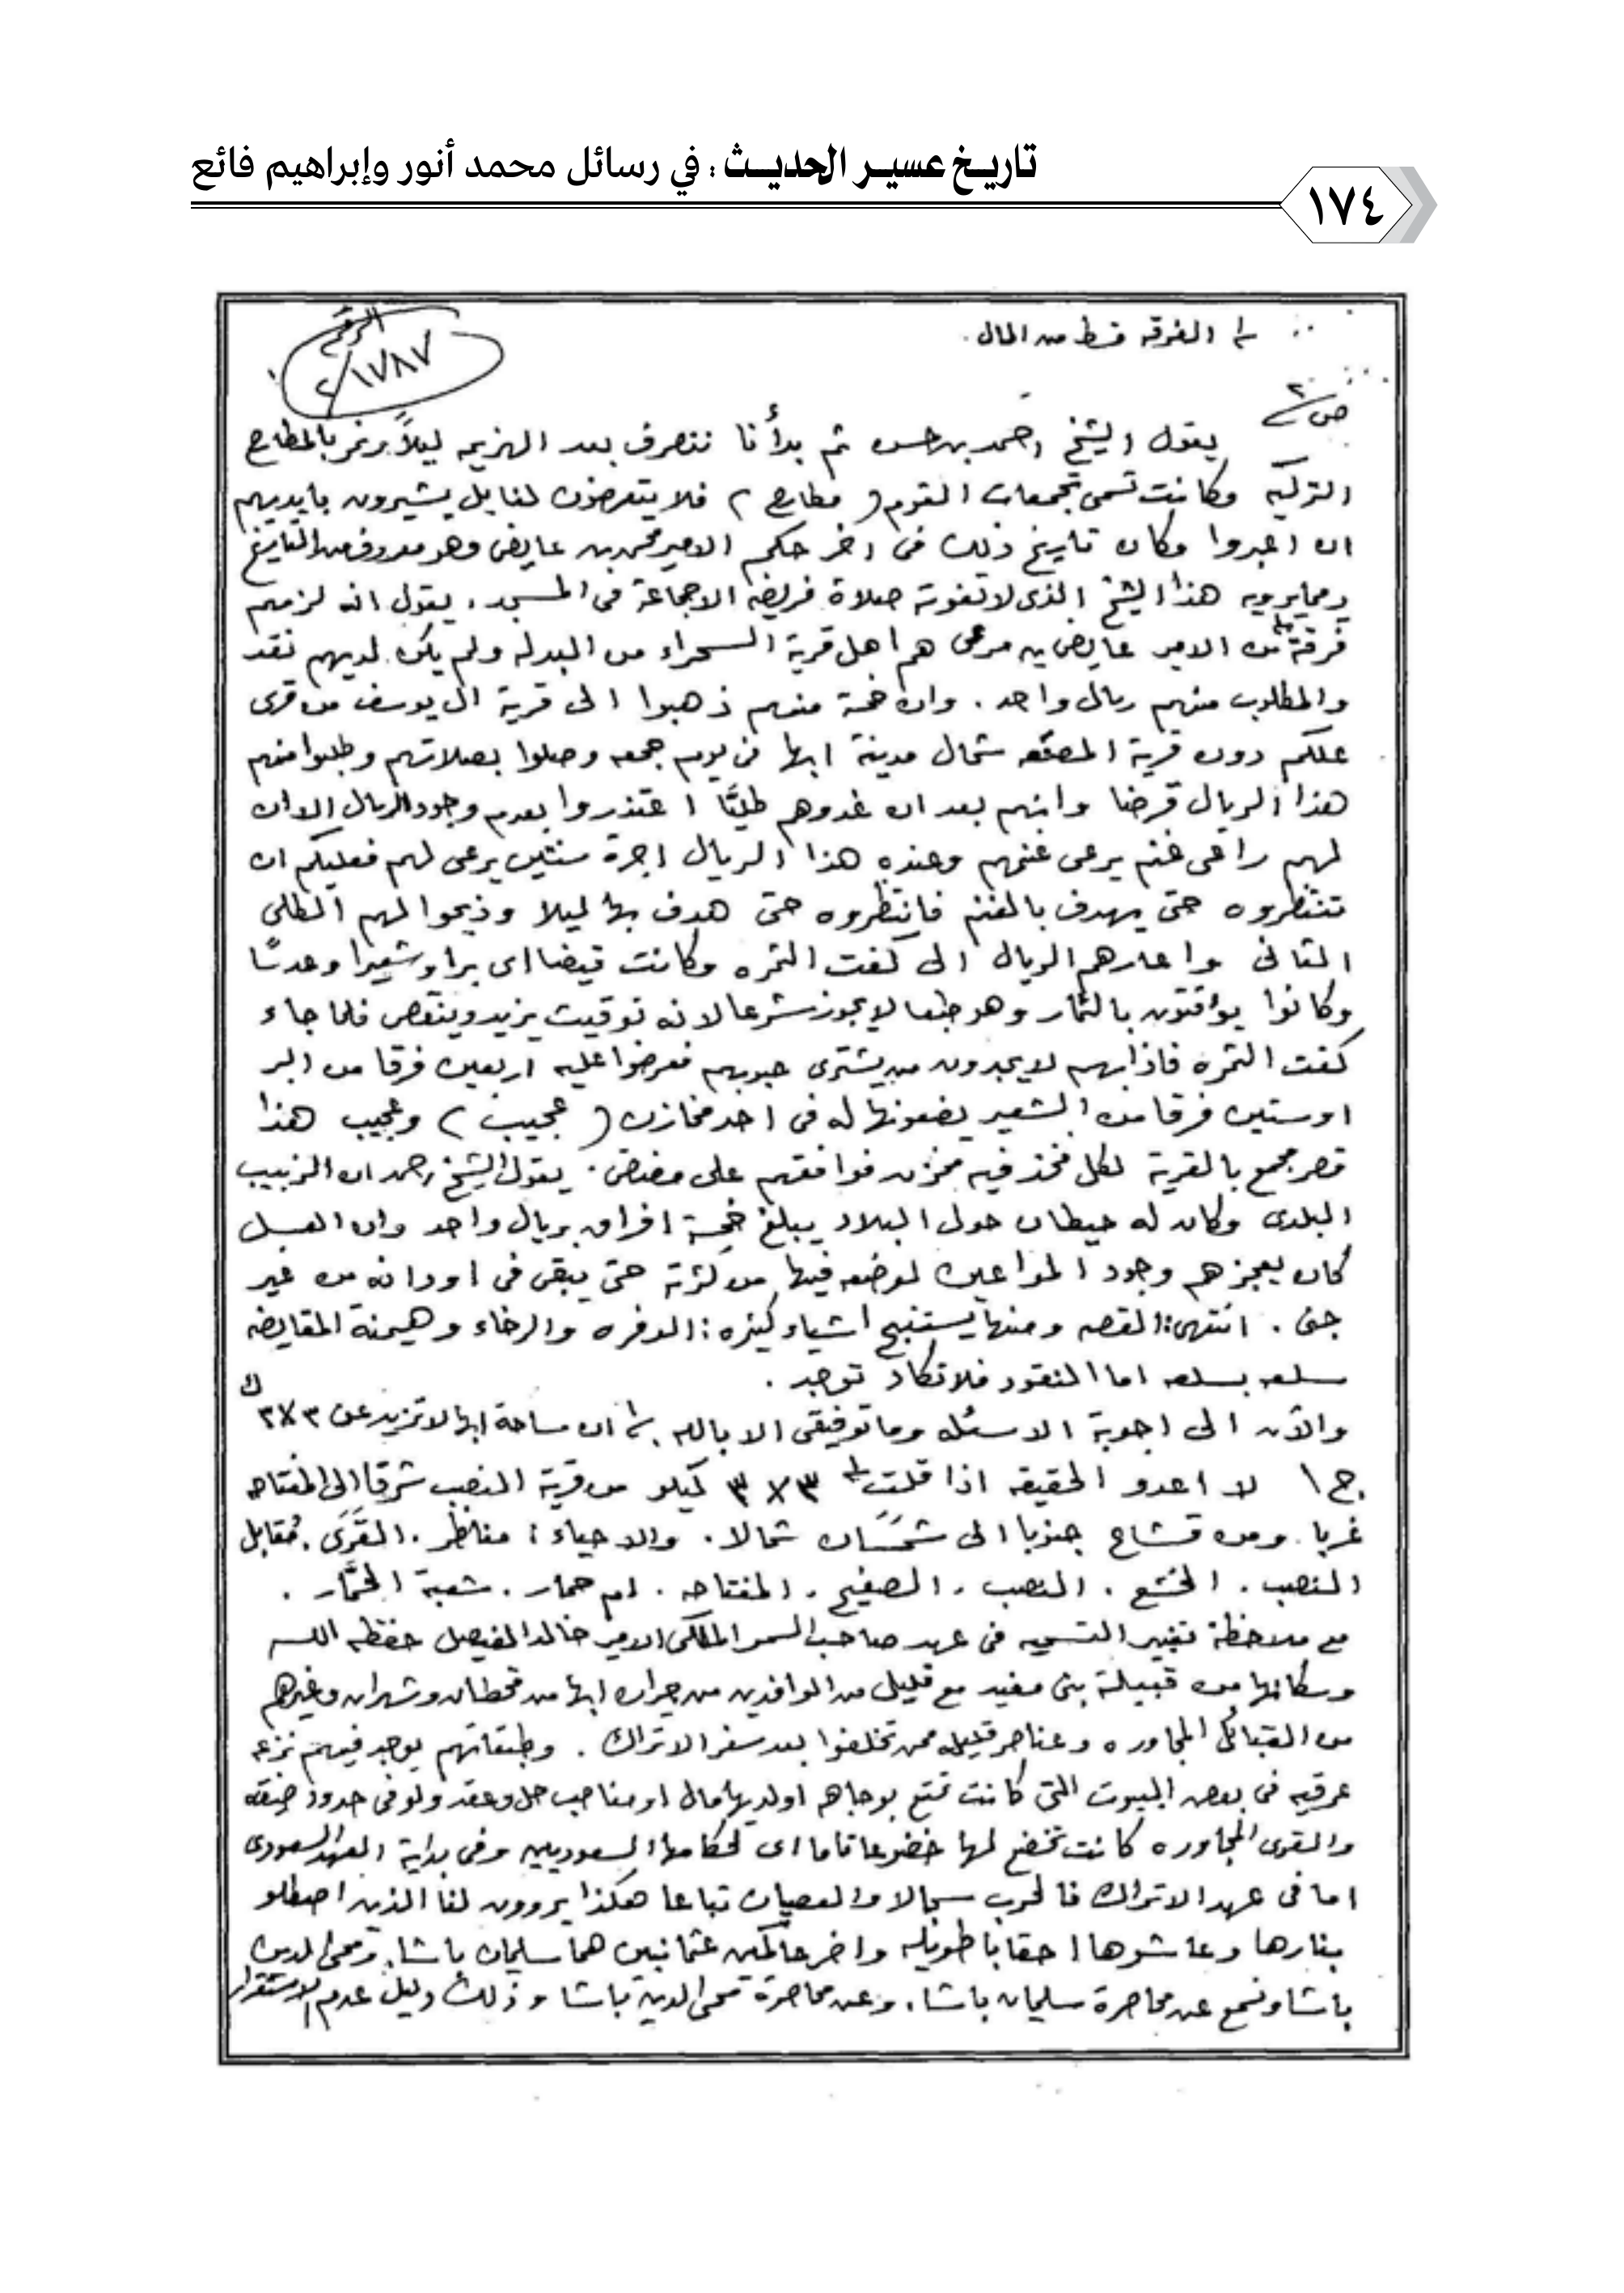 تاريخ عسير الحديث : في رسائل محمد أنور وإبراهيم فائع
١٧٤
١/ الفرقه قسط من المال .
الرقم
٢/١٧٨٧
ص ٢
يقول الشيخ احمد بن حسن ثم بدأنا ننصرف بعد الهزيمه ليلاً ونمر بالمطارح
التركيه وكانت تسمى تجمعات القوم ( مطارح ) فلا يتعرضون لنا بل يشيرون بايديهم
ان اعبروا وكان تاريخ ذلك فى اخر حكم الامير محمد بن عايض وهو معروف من التاريخ
ومما يرويه هذا الشيخ الذى لا تفوته صلاة فريضه الا جماعة فى المسجد . يقول انه لزمهم
فرقة من الامير عايض بن مرعى هم اهل قرية السحراء من البدله ولم يكن لديهم نقد
والمطلوب منهم ريال واحد . وان خمسة منهم ذهبوا الى قرية ال يوسف من قرى
علكم دون قرية المصقعه شمال مدينة ابها فى يوم جمعه وصلوا بصلاتهم وطلبوا منهم
هذا الريال قرضا وانهم بعد ان غدوهم طليًّا اعتذروا بعدم وجود الريال الا ان
لهم راعى غنم يرعى غنمهم وعنده هذا الريال اجرة سنتين يرعى لهم فعليكم ان
تنتظروه حتى يهدف بالغنم فانتظروه حتى هدف بها ليلا وذبحوا لهم الطلى
الثانى واعارهم الريال الى كفت الثمره وكانت قيضا اى برا وشعيرا وعدسًا
وكانوا يواقتون بالثمار وهو طبعا لا يجوز شرعا لانه توقيت يزيد وينقص فلما جاء
كفت الثمره فاذا بهم لا يجدون من يشترى حبوبهم فعرضوا عليه اربعين فرقا من البر
اوستين فرقا من الشعير يضعونها له فى احد مخازن ( عجيب ) وعجيب هذا
قصر مجمع بالقرية لكل فخذ فيه مخزن فوافقهم على مضض . يقول الشيخ احمد ان الزبيب
البلدى وكان له حيطان حول البلاد يبلغ خمسة افراق بريال واحد وان العسل
كان يعجزهم وجود المواعين لوضعه فيها من كثرته حتى يبقى فى اودانه من غير
جنى . انتهى : القصه ومنها يستنبح اشياء كثيره : الوفره والرخاء وهيمنة المقايضه
سلعه بسلعه اما النقود فلا تكاد توجد .
والآن الى اجوبة الاسئله وما توفيقى الا بالله ١/ ان مساحة ابها لا تزيد عن ٣×٣ ك
ج ١ لا اعدو الحقيقه اذا قلت ٣×٣ كيلو من قرية النصب شرقا الى المفتاحه
غربا . ومن قشاع جنوبا الى شمسان شمالا . والاحياء : مناظر . القَرَى . مُقابل
النصب . الخشع . النصب . الصفيح . المفتاحه . ام حمار . شعبة الخمَّار .
مع ملاحظة تغيير التسميه فى عهد صاحب السمو الملكى الامير خالد الفيصل حفظه الله
وسكانها من قبيلة بنى مغيد مع قليل من الوافدين من جيران ابها من قحطان وشهران وغيرهم
من القبائل المجاوره وعناصر قليله ممن تخلفوا بعد سفر الاتراك . وطبقاتهم يوجد فيهم نزعه
عرقيه فى بعض البيوت التى كانت تمتع بوجاهم اولديها مال او مناصب حل وعقد ولو فى حدود ضيقه
والقرى المجاوره كانت تخضع لها خضوعا تاما اى لحكامها السعوديين وفى بداية العهد السعودى
اما فى عهد الاتراك فالحرب سجالا والعصيان تباعا هكذا يروون لنا الذين اصطلو
بنارها وعاشوها احقابا طويله واخر حاكمين عثمانيين هما سليمان باشا . ومحى الدين
باشا ونسمع عن محاصرة سليمان باشا . وعن محاصرة محى الدين باشا وذلك دليل عدم الاستقرار